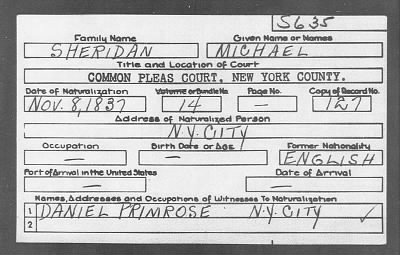 S635
Family Name Given Name or Names
SHERIDAN MICHAEL
Title and Location of Court
COMMON PLEAS COURT, NEW YORK COUNTY.
Date of Naturalization Volume or Bundle No. Page No. Copy of Record No.
NOV. 8, 1837 14 — 127
Address of Naturalized Person
N.Y. CITY
Occupation Birth Date or Age Former Nationality
— — ENGLISH
Port of Arrival in the United States Date of Arrival
— —
Names, Addresses and Occupations of Witnesses To Naturalization
1 DANIEL PRIMROSE N.Y. CITY ✓
2